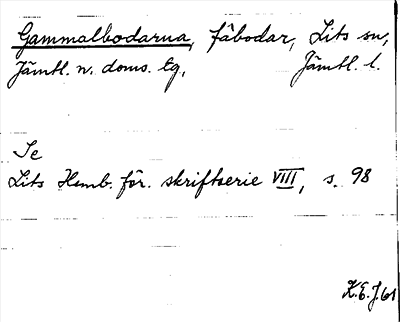 Gammalbodarna, fäbodar, Lits sn,
Jämtl. n. doms. tg, Jämtl. l.
Se
Lits Hemb. för. skriftserie VIII, s. 98
K.E.J. 61